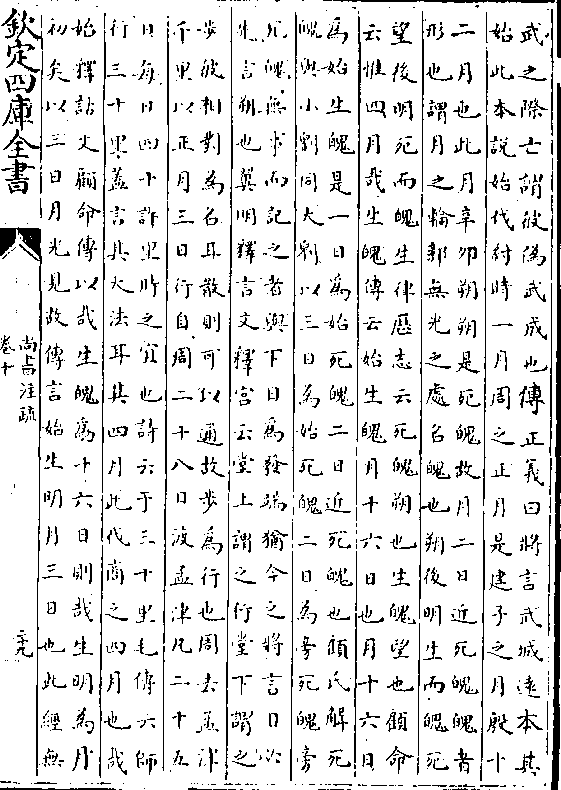 武之際亡謂彼偽武成也傳正義曰將言武城遠本其
始此本說始代紂時一月周之正月是建子之月殷十
二月也此月辛卯朔朔是死魄故月二日近死魄魄者
形也謂月之輪郭無光之處名魄也朔後明生而魄死
望後明死而魄生律歷志云死魄朔也生魄望也顧命
云惟四月哉生魄傳云始生魄月十六日也月十六日
為始生魄是一日為始死魄二日近死魄也顧氏解死
魄與小劉同大劉以三日為始死魄二日為旁死魄旁
死魄無事而記之者與下日為發端猶今之將言日必
先言朔也翼明釋言文釋宮云堂上謂之行堂下謂之
步彼相對為名耳散則可以通故步為行也周去孟津
千里以正月三日行自周二十八日渡孟津凡二十五
日每日四十許里時之宜也詩云于三十里毛傳云師
行三十里蓋言其大法耳其四月此代商之四月也哉
始釋詁文顧命傳以哉生魄為十六日則哉生明為月
初矣以三日月光見故傳言始生明月三日也此經無
欽定四庫全書
尚書注疏
卷十